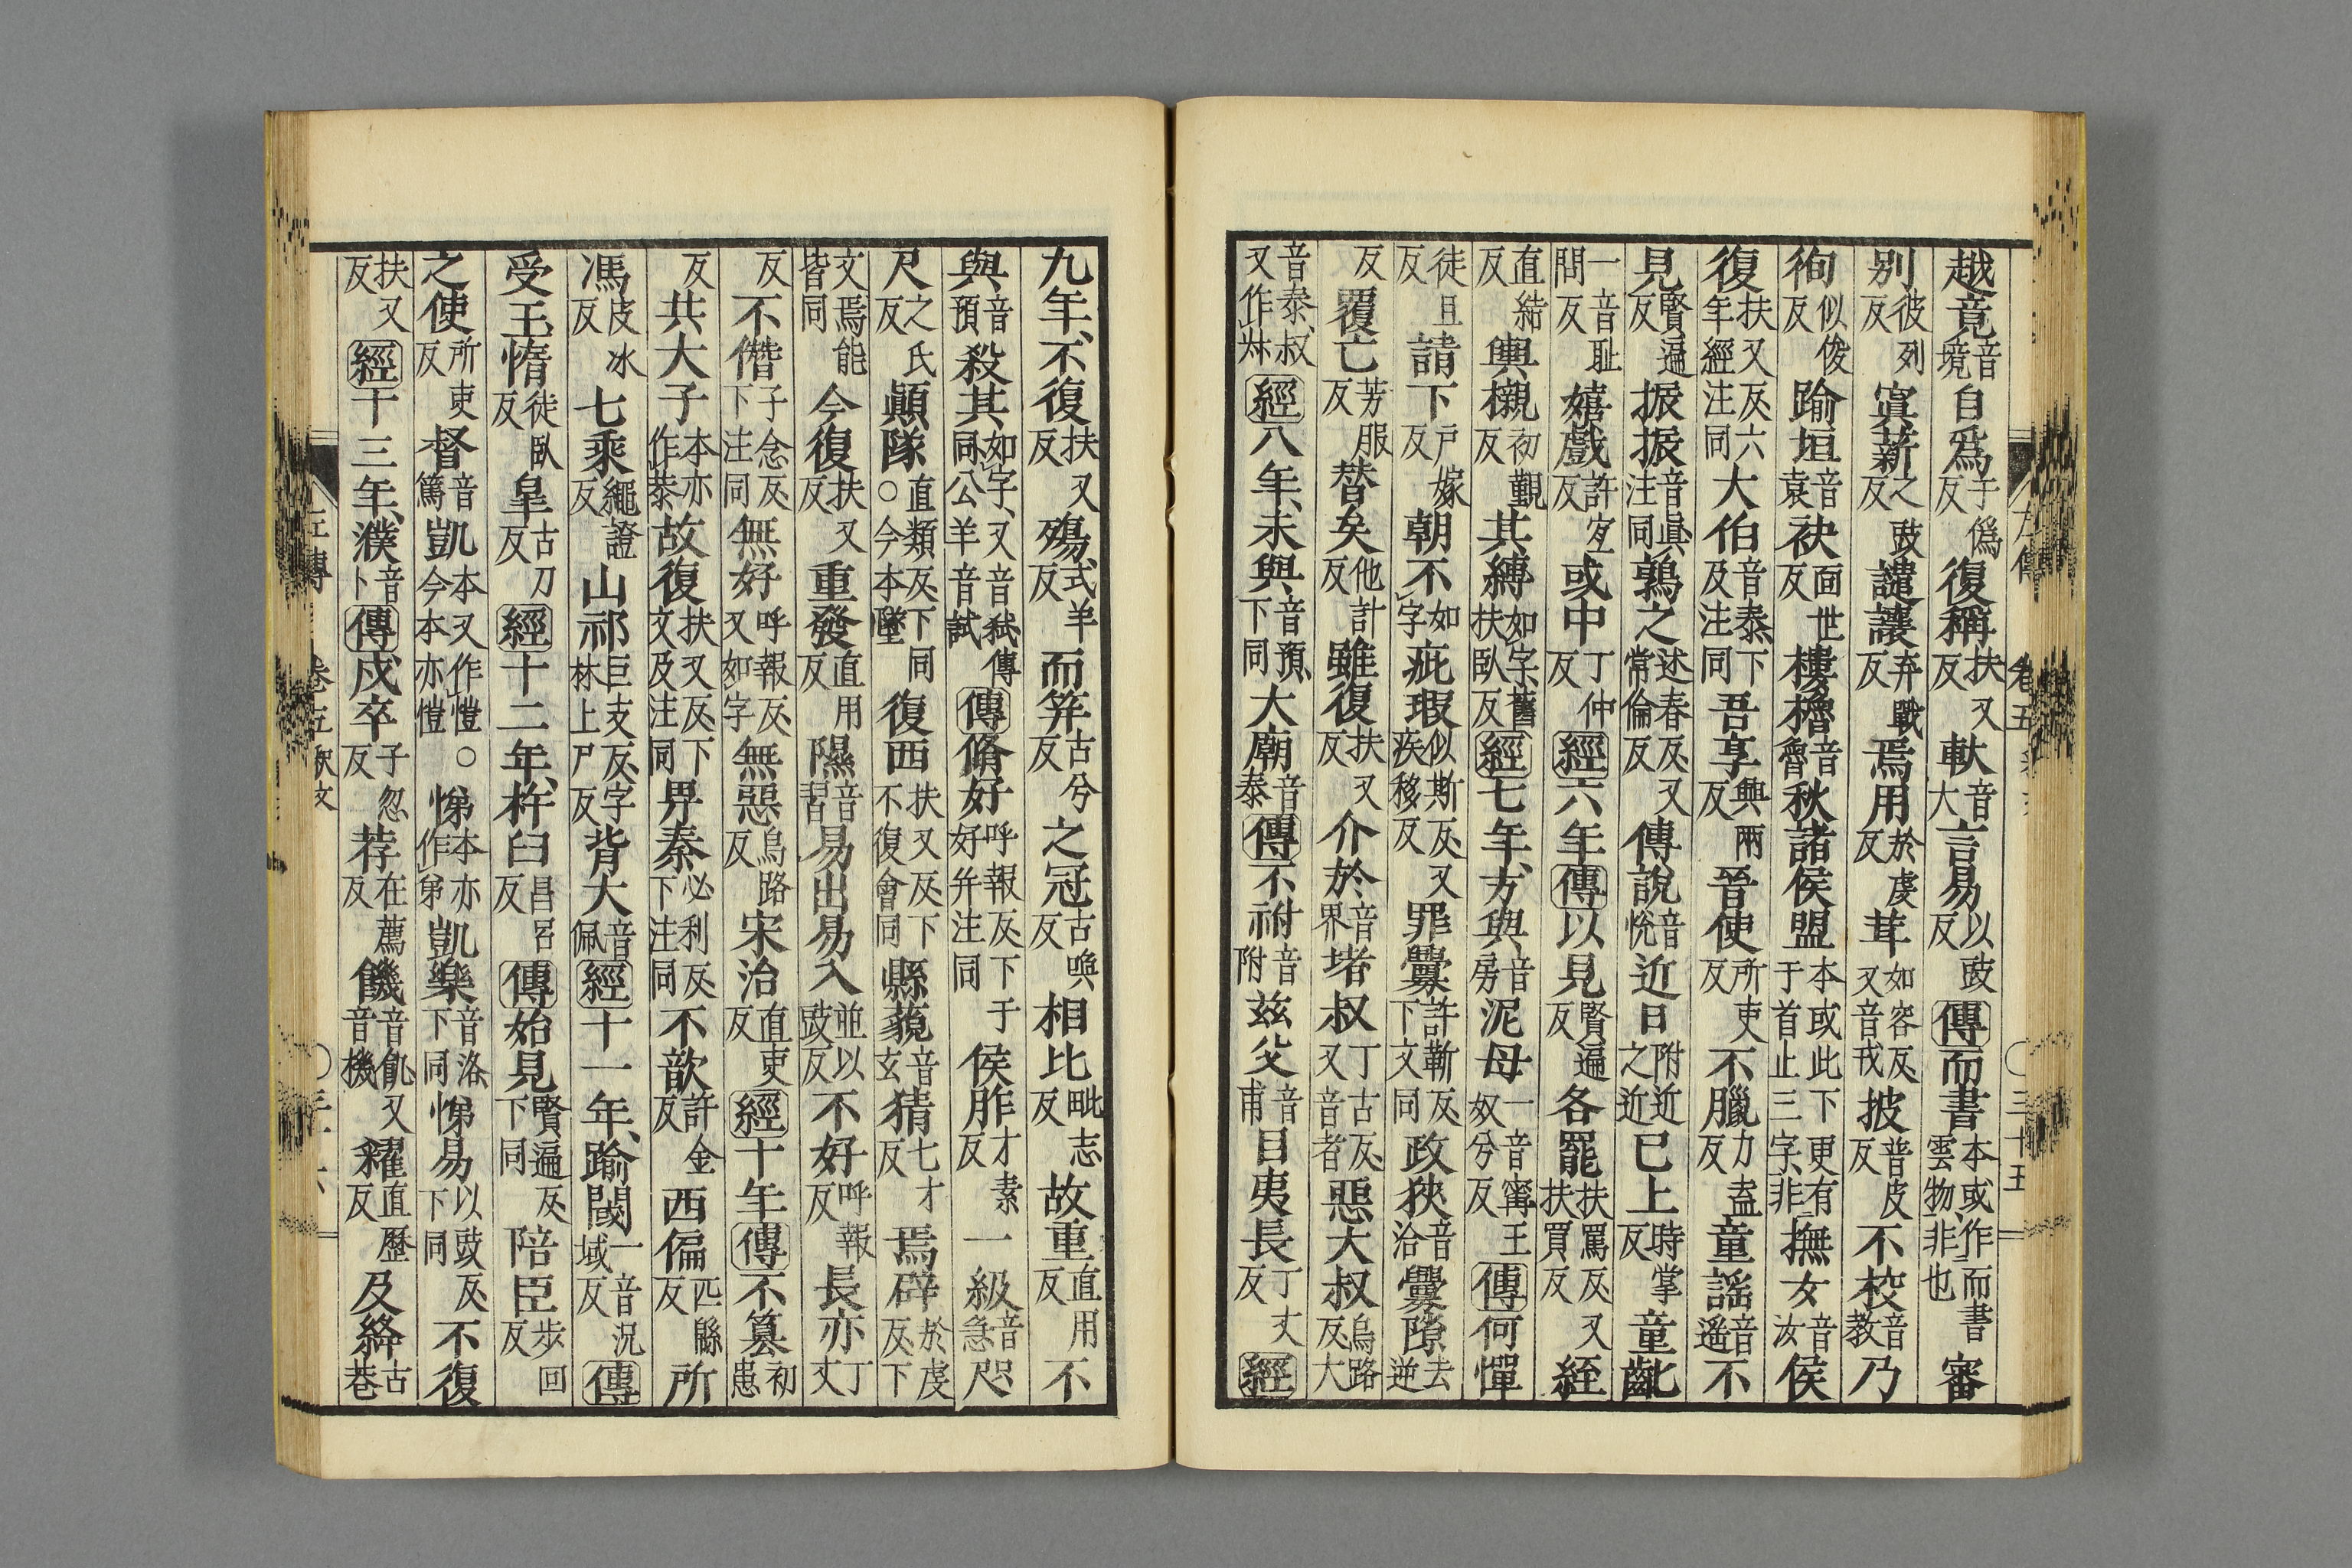 左傳 卷五 ○三十五
越竟音境自爲于僞反復稱扶又反軑音大言易以豉反傳而書本或作而書雲物非也審
别彼列反寘薪之豉反譴讓弃戰反焉用於虔反茸如容反又音戎披普皮反不校音教乃
徇似俊反踰垣音袁袂面世反樓櫓音魯秋諸侯盟本或此下更有于首止三字非撫女音汝侯
復扶又反六年經注同大伯音泰下及注同吾享興兩反晉使所吏反不臘力盍反童謡音遥不
見賢遍反振振音眞注同鶉之述春反又常倫反傳說音悅近日附近之近已上時掌反童齔
一音耻問反嬉戲許宜反或中丁仲反經六年傳以見賢遍反各罷扶罵反又扶買反絰
直結反輿櫬初覲反其縛如字舊扶臥反經七年方與音房泥母一音甯王奴兮反傳何憚
徒旦反請下戶嫁反朝不如字疵瑕似斯反又疾移反罪釁許靳反下文同政狹音洽釁隙去逆
反覆亡芳服反替矣他計反雖復扶又反介於音界堵叔丁古反又音者惡大叔烏路反大
音泰叔又作尗經八年未與音預下同大廟音泰傳不祔音附兹父音甫目夷長丁丈反經
九年不復扶又反殤式羊反而笄古兮反之冠古喚反相比毗志反故重直用反不
與音預殺其如字又音弑傳同公羊音試傳脩好呼報反下于好幷注同侯胙才素反一級音急咫
尺之氏反顚隊直類反下同○今本墜復西扶又反下不復會同縣藐音玄猜七才反焉辟於虔反下
文焉能皆同今復扶又反重發直用反隰音習易出易入並以豉反不好呼報反長亦丁丈
反不僭子念反下注同無好呼報反又如字無惡烏路反宋治直吏反經十年傳不簒初患
反共大子本亦作恭故復扶又反下文及注同畀秦必利反下注同不歆許金反西偏匹緜反所
馮皮冰反七乘繩證反山祁巨支反字林上尸反背大音佩經十一年踰閾一音況域反傳
受玉惰徒臥反皐古刀反經十二年杵臼昌呂反傳始見賢遍反下同陪臣步回反
之使所吏反督音篤凱本又作愷今本亦愷○悌本亦作弟凱樂音洛下同悌易以豉反下同不復
扶又反經十三年濮音卜傳戍卒子忽反荐在薦反饑音飢又音機糴直歷反及絳古巷
左傳 卷五釋文 ○三十六